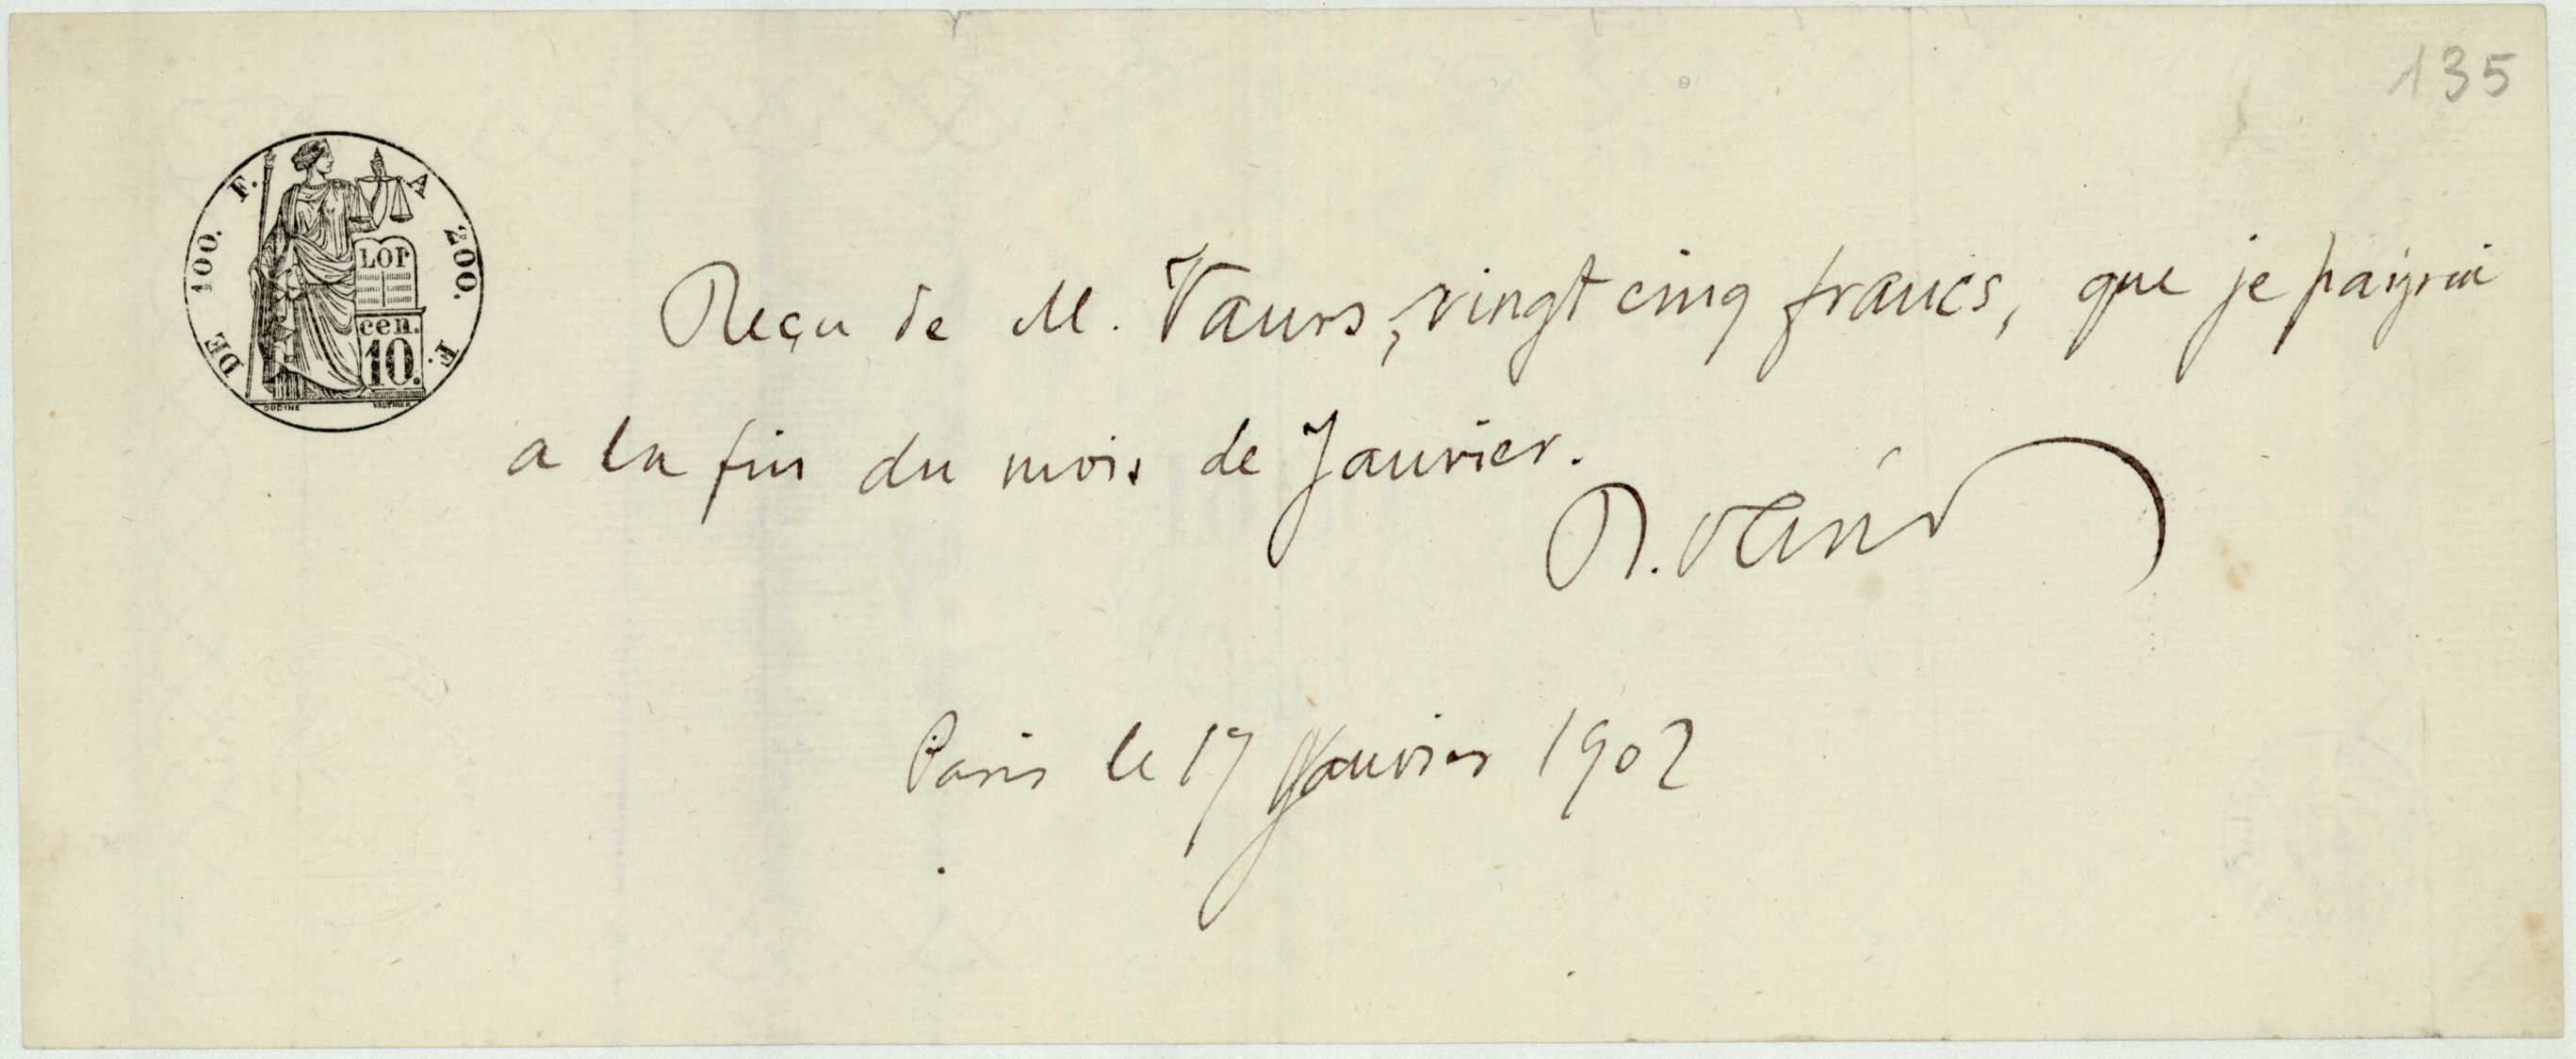 135
DE 100. F. A 200. F.
LOI
cen.
10.
OUDINE VAUTHIER
Reçu de M. Vaurs, vingt cinq francs, que je paigrai
a la fin du mois de Janvier.
Paris le 17 Janvier 1902